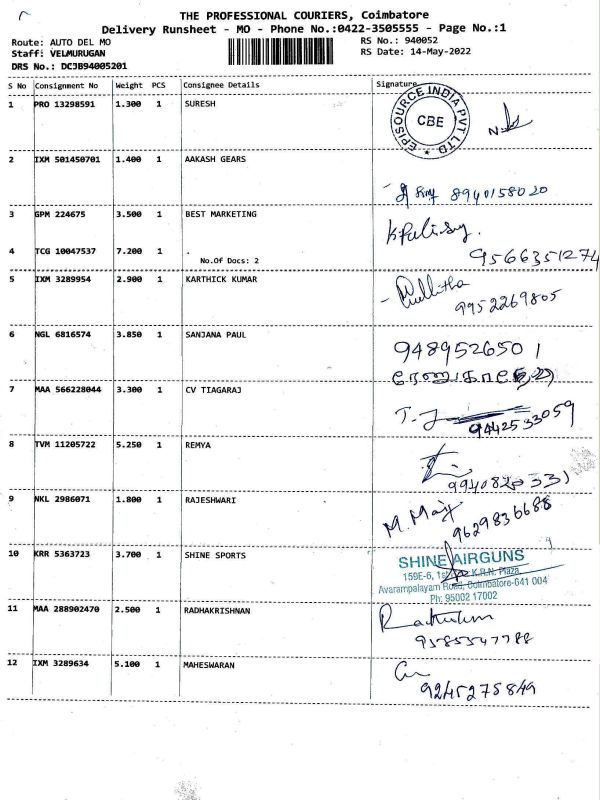 THE PROFESSIONAL COURIERS, Coimbatore
Delivery Runsheet - MO - Phone No.:0422-3505555 - Page No.:1
Route: AUTO DEL MO
RS No.: 940052
Staff: VELMURUGAN
RS Date: 14-May-2022
DRS No.: DCJB94005201
S No Consignment No Weight PCS Consignee Details Signature
1 PRO 13298591 1.300 1 SURESH
EPISOURCE INDIA PVT LTD
CBE
2 IXM 501450701 1.400 1 AAKASH GEARS
8940158020
3 GPM 224675 3.500 1 BEST MARKETING
4 TCG 10047537 7.200 1 .
No.Of Docs: 2
9566351274
5 IXM 3289954 2.900 1 KARTHICK KUMAR
9952269805
6 NGL 6816574 3.850 1 SANJANA PAUL
9489526501
7 MAA 566228044 3.300 1 CV TIAGARAJ
9442533059
8 TVM 11205722 5.250 1 REMYA
9940820331
9 NKL 2986071 1.800 1 RAJESHWARI
9629836688
10 KRR 5363723 3.700 1 SHINE SPORTS
SHINE AIRGUNS
159E-6, 1st K.R.N. Plaza,
Avarampalayam Road, Coimbatore-641 004
Ph: 95002 17002
11 MAA 288902470 2.500 1 RADHAKRISHNAN
9585547788
12 IXM 3289634 5.100 1 MAHESWARAN
9245275849